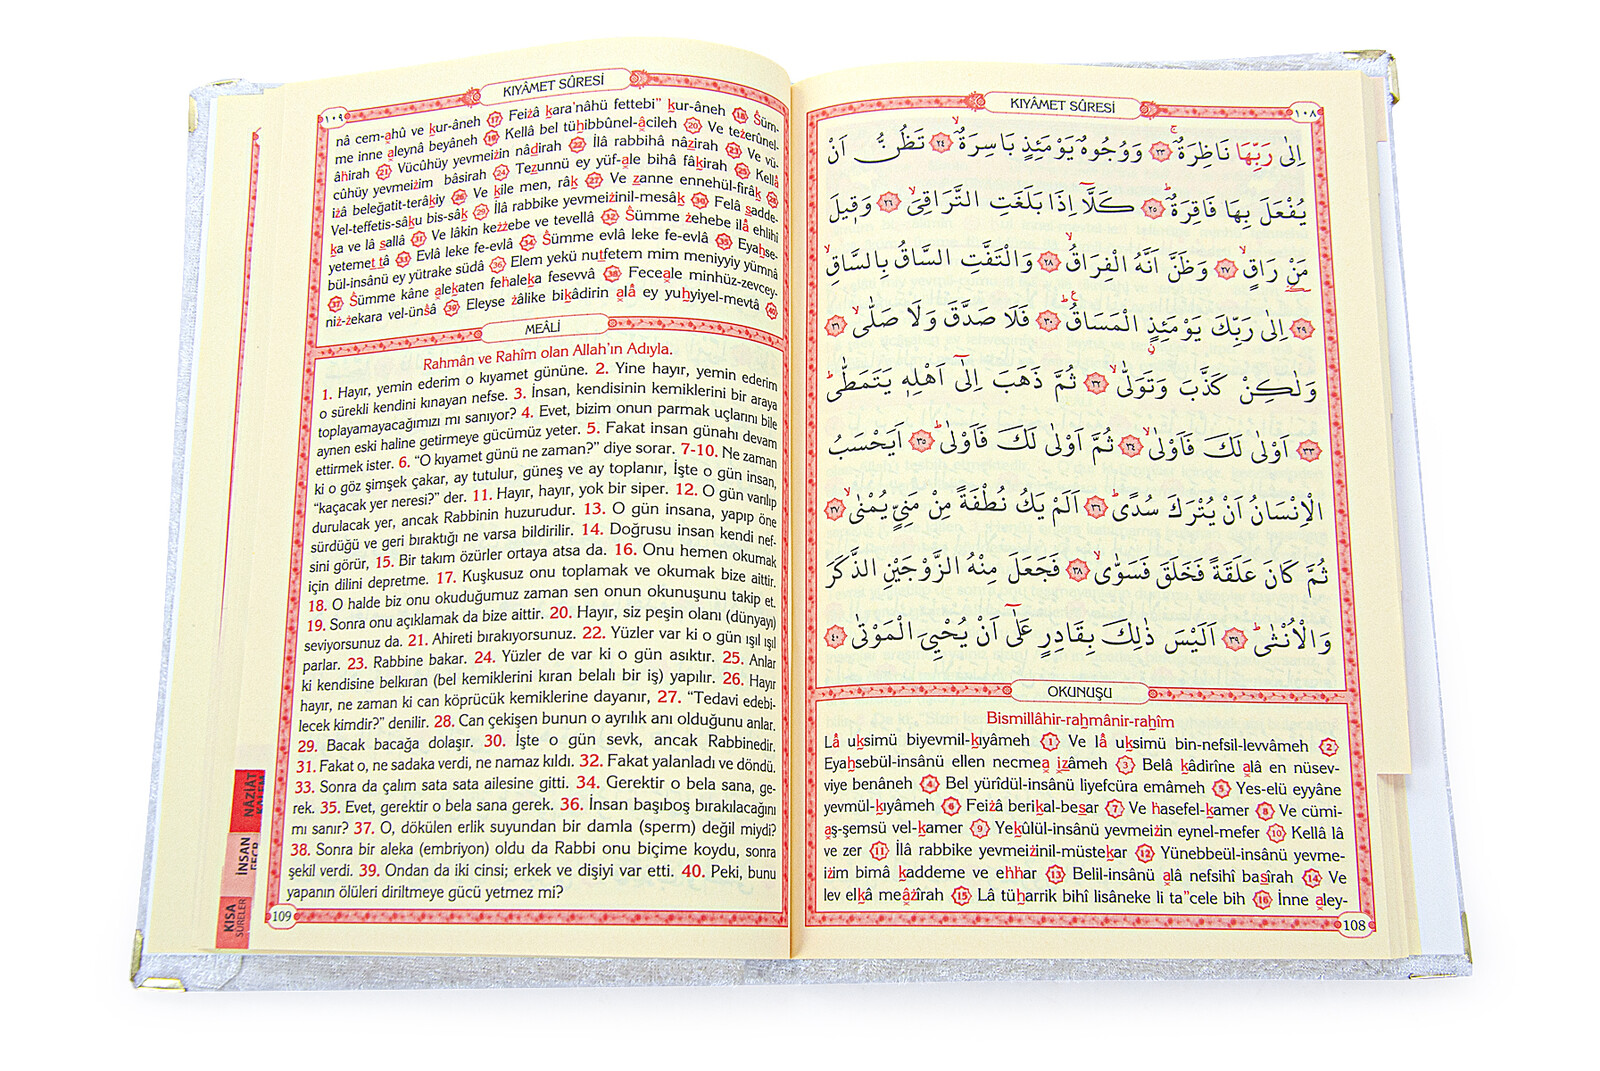 KIYÂMET SÛRESİ
١٠٨
اِلٰى رَبِّهَا نَاظِرَةٌۚ ﴿٢٣﴾ وَوُجُوهٌ يَوْمَئِذٍ بَاسِرَةٌۙ ﴿٢٤﴾ تَظُنُّ اَنْ
يُفْعَلَ بِهَا فَاقِرَةٌۜ ﴿٢٥﴾ كَلَّٓا اِذَا بَلَغَتِ التَّرَاقِيَۙ ﴿٢٦﴾ وَق۪يلَ
مَنْ رَاقٍۙ ﴿٢٧﴾ وَظَنَّ اَنَّهُ الْفِرَاقُۙ ﴿٢٨﴾ وَالْتَفَّتِ السَّاقُ بِالسَّاقِۙ
﴿٢٩﴾ اِلٰى رَبِّكَ يَوْمَئِذٍ الْمَسَاقُۜ ﴿٣٠﴾ فَلَا صَدَّقَ وَلَا صَلّٰىۙ ﴿٣١﴾
وَلٰكِنْ كَذَّبَ وَتَوَلّٰىۙ ﴿٣٢﴾ ثُمَّ ذَهَبَ اِلٰٓى اَهْلِه۪ يَتَمَطّٰىۜ
﴿٣٣﴾ اَوْلٰى لَكَ فَاَوْلٰىۙ ﴿٣٤﴾ ثُمَّ اَوْلٰى لَكَ فَاَوْلٰىۜ ﴿٣٥﴾ اَيَحْسَبُ
الْاِنْسَانُ اَنْ يُتْرَكَ سُدًىۜ ﴿٣٦﴾ اَلَمْ يَكُ نُطْفَةً مِنْ مَنِيٍّ يُمْنٰىۙ ﴿٣٧﴾
ثُمَّ كَانَ عَلَقَةً فَخَلَقَ فَسَوّٰىۙ ﴿٣٨﴾ فَجَعَلَ مِنْهُ الزَّوْجَيْنِ الذَّكَرَ
وَالْاُنْثٰىۜ ﴿٣٩﴾ اَلَيْسَ ذٰلِكَ بِقَادِرٍ عَلٰٓى اَنْ يُحْيِيَ الْمَوْتٰى ﴿٤٠﴾
OKUNUŞU
Bismillâhir-raḥmânir-raḥîm
Lâ uksimü biyevmil-kıyâmeh 1 Ve lâ uksimü bin-nefsil-levvâmeh 2
Eyahsebül-insânü ellen necmea izâmeh 3 Belâ kâdirîne alâ en nüsev-
viye benâneh 4 Bel yürîdül-insânü liyefcüra emâmeh 5 Yes-elü eyyâne
yevmül-kıyâmeh 6 Feiżâ berikal-besar 7 Ve hasefel-kamer 8 Ve cümi-
aş-şemsü vel-kamer 9 Yekûlül-insânü yevmeiżin eynel-mefer 10 Kellâ lâ
ve zer 11 İlâ rabbike yevmeiżinil-müstekar 12 Yünebbeül-insânü yevme-
iżim bimâ kaddeme ve ehhar 13 Belil-insânü alâ nefsihî basîrah 14 Ve
lev elkâ meâżîrah 15 Lâ tüharrik bihî lisâneke li ta"cele bih 16 İnne aley-
108
KIYÂMET SÛRESİ
١٠٩
nâ cem-ahû ve kur-âneh 17 Feiżâ kara'nâhü fettebi" kur-âneh 18 Śüm-
me inne aleynâ beyâneh 19 Kellâ bel tühibbûnel-âcileh 20 Ve teżerûnel-
âhirah 21 Vücûhüy yevmeiżin nâdirah 22 İlâ rabbihâ nâzirah 23 Ve vü-
cûhüy yevmeiżim bâsirah 24 Tezunnü ey yüf-ale bihâ fâkirah 25 Kellâ
iżâ beleğatit-terâkiy 26 Ve kile men, râk 27 Ve zanne ennehül-firâk 28
Vel-teffetis-sâku bis-sâk 29 İlâ rabbike yevmeiżinil-mesâk 30 Felâ sadde-
ka ve lâ sallâ 31 Ve lâkin keżżebe ve tevellâ 32 Śümme żehebe ilâ ehlihî
yetemettâ 33 Evlâ leke fe-evlâ 34 Śümme evlâ leke fe-evlâ 35 Eyahse-
bül-insânü ey yütrake südâ 36 Elem yekü nutfetem mim meniyyiy yümnâ
37 Śümme kâne alekaten fehaleka fesevvâ 38 Feceale minhüz-zevcey-
niż-żekara vel-ünśâ 39 Eleyse żâlike bikâdirin alâ ey yuhyiyel-mevtâ 40
MEÂLİ
Rahmân ve Rahîm olan Allah'ın Adıyla.
1. Hayır, yemin ederim o kıyamet gününe. 2. Yine hayır, yemin ederim
o sürekli kendini kınayan nefse. 3. İnsan, kendisinin kemiklerini bir araya
toplayamayacağımızı mı sanıyor? 4. Evet, bizim onun parmak uçlarını bile
aynen eski haline getirmeye gücümüz yeter. 5. Fakat insan günahı devam
ettirmek ister. 6. "O kıyamet günü ne zaman?" diye sorar. 7-10. Ne zaman
ki o göz şimşek çakar, ay tutulur, güneş ve ay toplanır, İşte o gün insan,
"kaçacak yer neresi?" der. 11. Hayır, hayır, yok bir siper. 12. O gün varılıp
durulacak yer, ancak Rabbinin huzurudur. 13. O gün insana, yapıp öne
sürdüğü ve geri bıraktığı ne varsa bildirilir. 14. Doğrusu insan kendi nef-
sini görür, 15. Bir takım özürler ortaya atsa da. 16. Onu hemen okumak
için dilini depretme. 17. Kuşkusuz onu toplamak ve okumak bize aittir.
18. O halde biz onu okuduğumuz zaman sen onun okunuşunu takip et.
19. Sonra onu açıklamak da bize aittir. 20. Hayır, siz peşin olanı (dünyayı)
seviyorsunuz da. 21. Ahireti bırakıyorsunuz. 22. Yüzler var ki o gün ışıl ışıl
parlar. 23. Rabbine bakar. 24. Yüzler de var ki o gün asıktır. 25. Anlar
ki kendisine belkıran (bel kemiklerini kıran belalı bir iş) yapılır. 26. Hayır
hayır, ne zaman ki can köprücük kemiklerine dayanır, 27. "Tedavi edebi-
lecek kimdir?" denilir. 28. Can çekişen bunun o ayrılık anı olduğunu anlar.
29. Bacak bacağa dolaşır. 30. İşte o gün sevk, ancak Rabbinedir.
31. Fakat o, ne sadaka verdi, ne namaz kıldı. 32. Fakat yalanladı ve döndü.
33. Sonra da çalım sata sata ailesine gitti. 34. Gerektir o bela sana, ge-
rek. 35. Evet, gerektir o bela sana gerek. 36. İnsan başıboş bırakılacağını
mı sanır? 37. O, dökülen erlik suyundan bir damla (sperm) değil miydi?
38. Sonra bir aleka (embriyon) oldu da Rabbi onu biçime koydu, sonra
şekil verdi. 39. Ondan da iki cinsi; erkek ve dişiyi var etti. 40. Peki, bunu
yapanın ölüleri diriltmeye gücü yetmez mi?
109
NÂZİÂT
İNSAN
KISA
SÛRELER